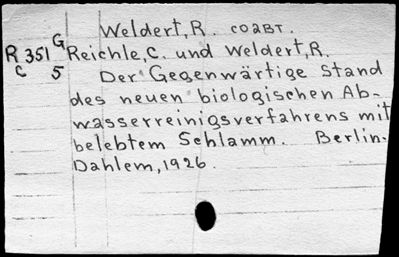 Weldert, R. соавт.
R 351 G Reichle, C. und Weldert, R.
C 5 Der Gegenwärtige Stand
des neuen biologischen Ab-
wasserreinigsverfahrens mit
belebtem Schlamm. Berlin-
Dahlem, 1926